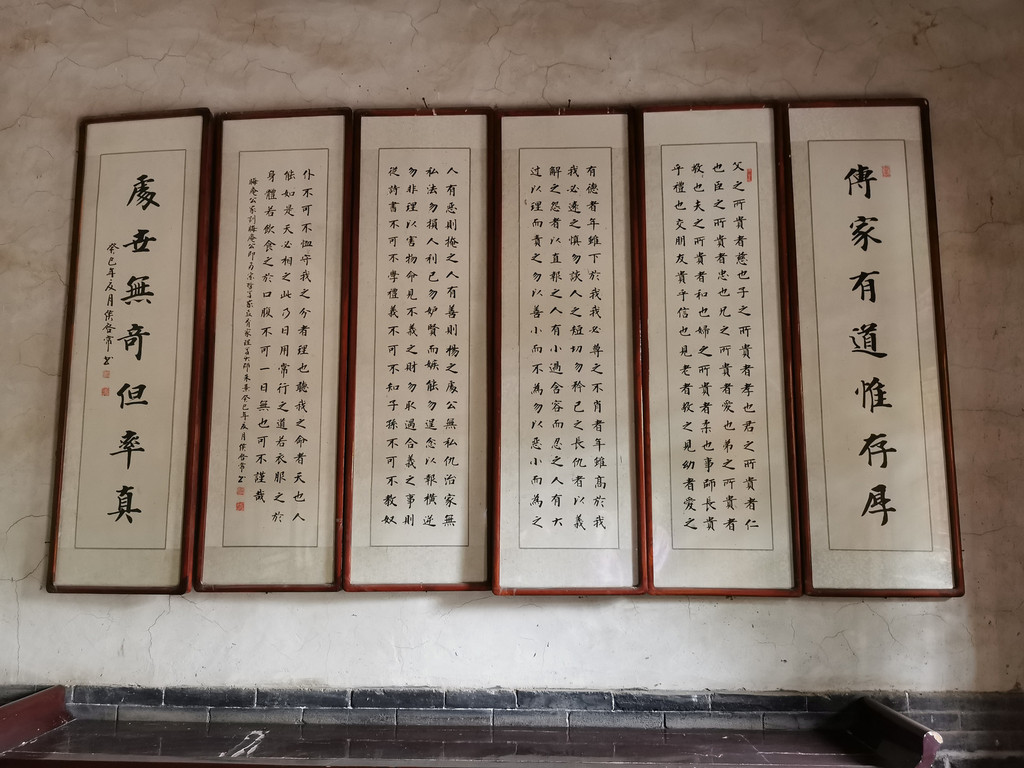 傳家有道惟存厚
父之所貴者慈也子之所貴者孝也君之所貴者仁
也臣之所貴者忠也兄之所貴者愛也弟之所貴者
敬也夫之所貴者和也婦之所貴者柔也事師長貴
乎禮也交朋友貴乎信也見老者敬之見幼者愛之
有德者年雖下於我我必尊之不肖者年雖高於我
我必遠之慎勿談人之短切勿矜己之長仇者以義
解之怨者以直報之人有小過含容而忍之人有大
过以理而責之勿以善小而不為勿以惡小而為之
人有惡則掩之人有善則楊之處公無私仇治家無
私法勿損人利己勿妒賢而嫉能勿逞忿以報橫逆
勿非理以害物命見不義之財勿取遇合義之事則
從詩書不可不學禮義不可不知子孫不可不教奴
仆不可不恤守我之分者理也聽我之命者天也人
能如是天必相之此乃日用常行之道若衣服之於
身體若飲食之於口腹不可一日無也可不謹哉
晦庵公家訓晦庵公即朱熹癸巳年夏月侯啓常书
處世無奇但率真
癸巳年夏月侯啓常书